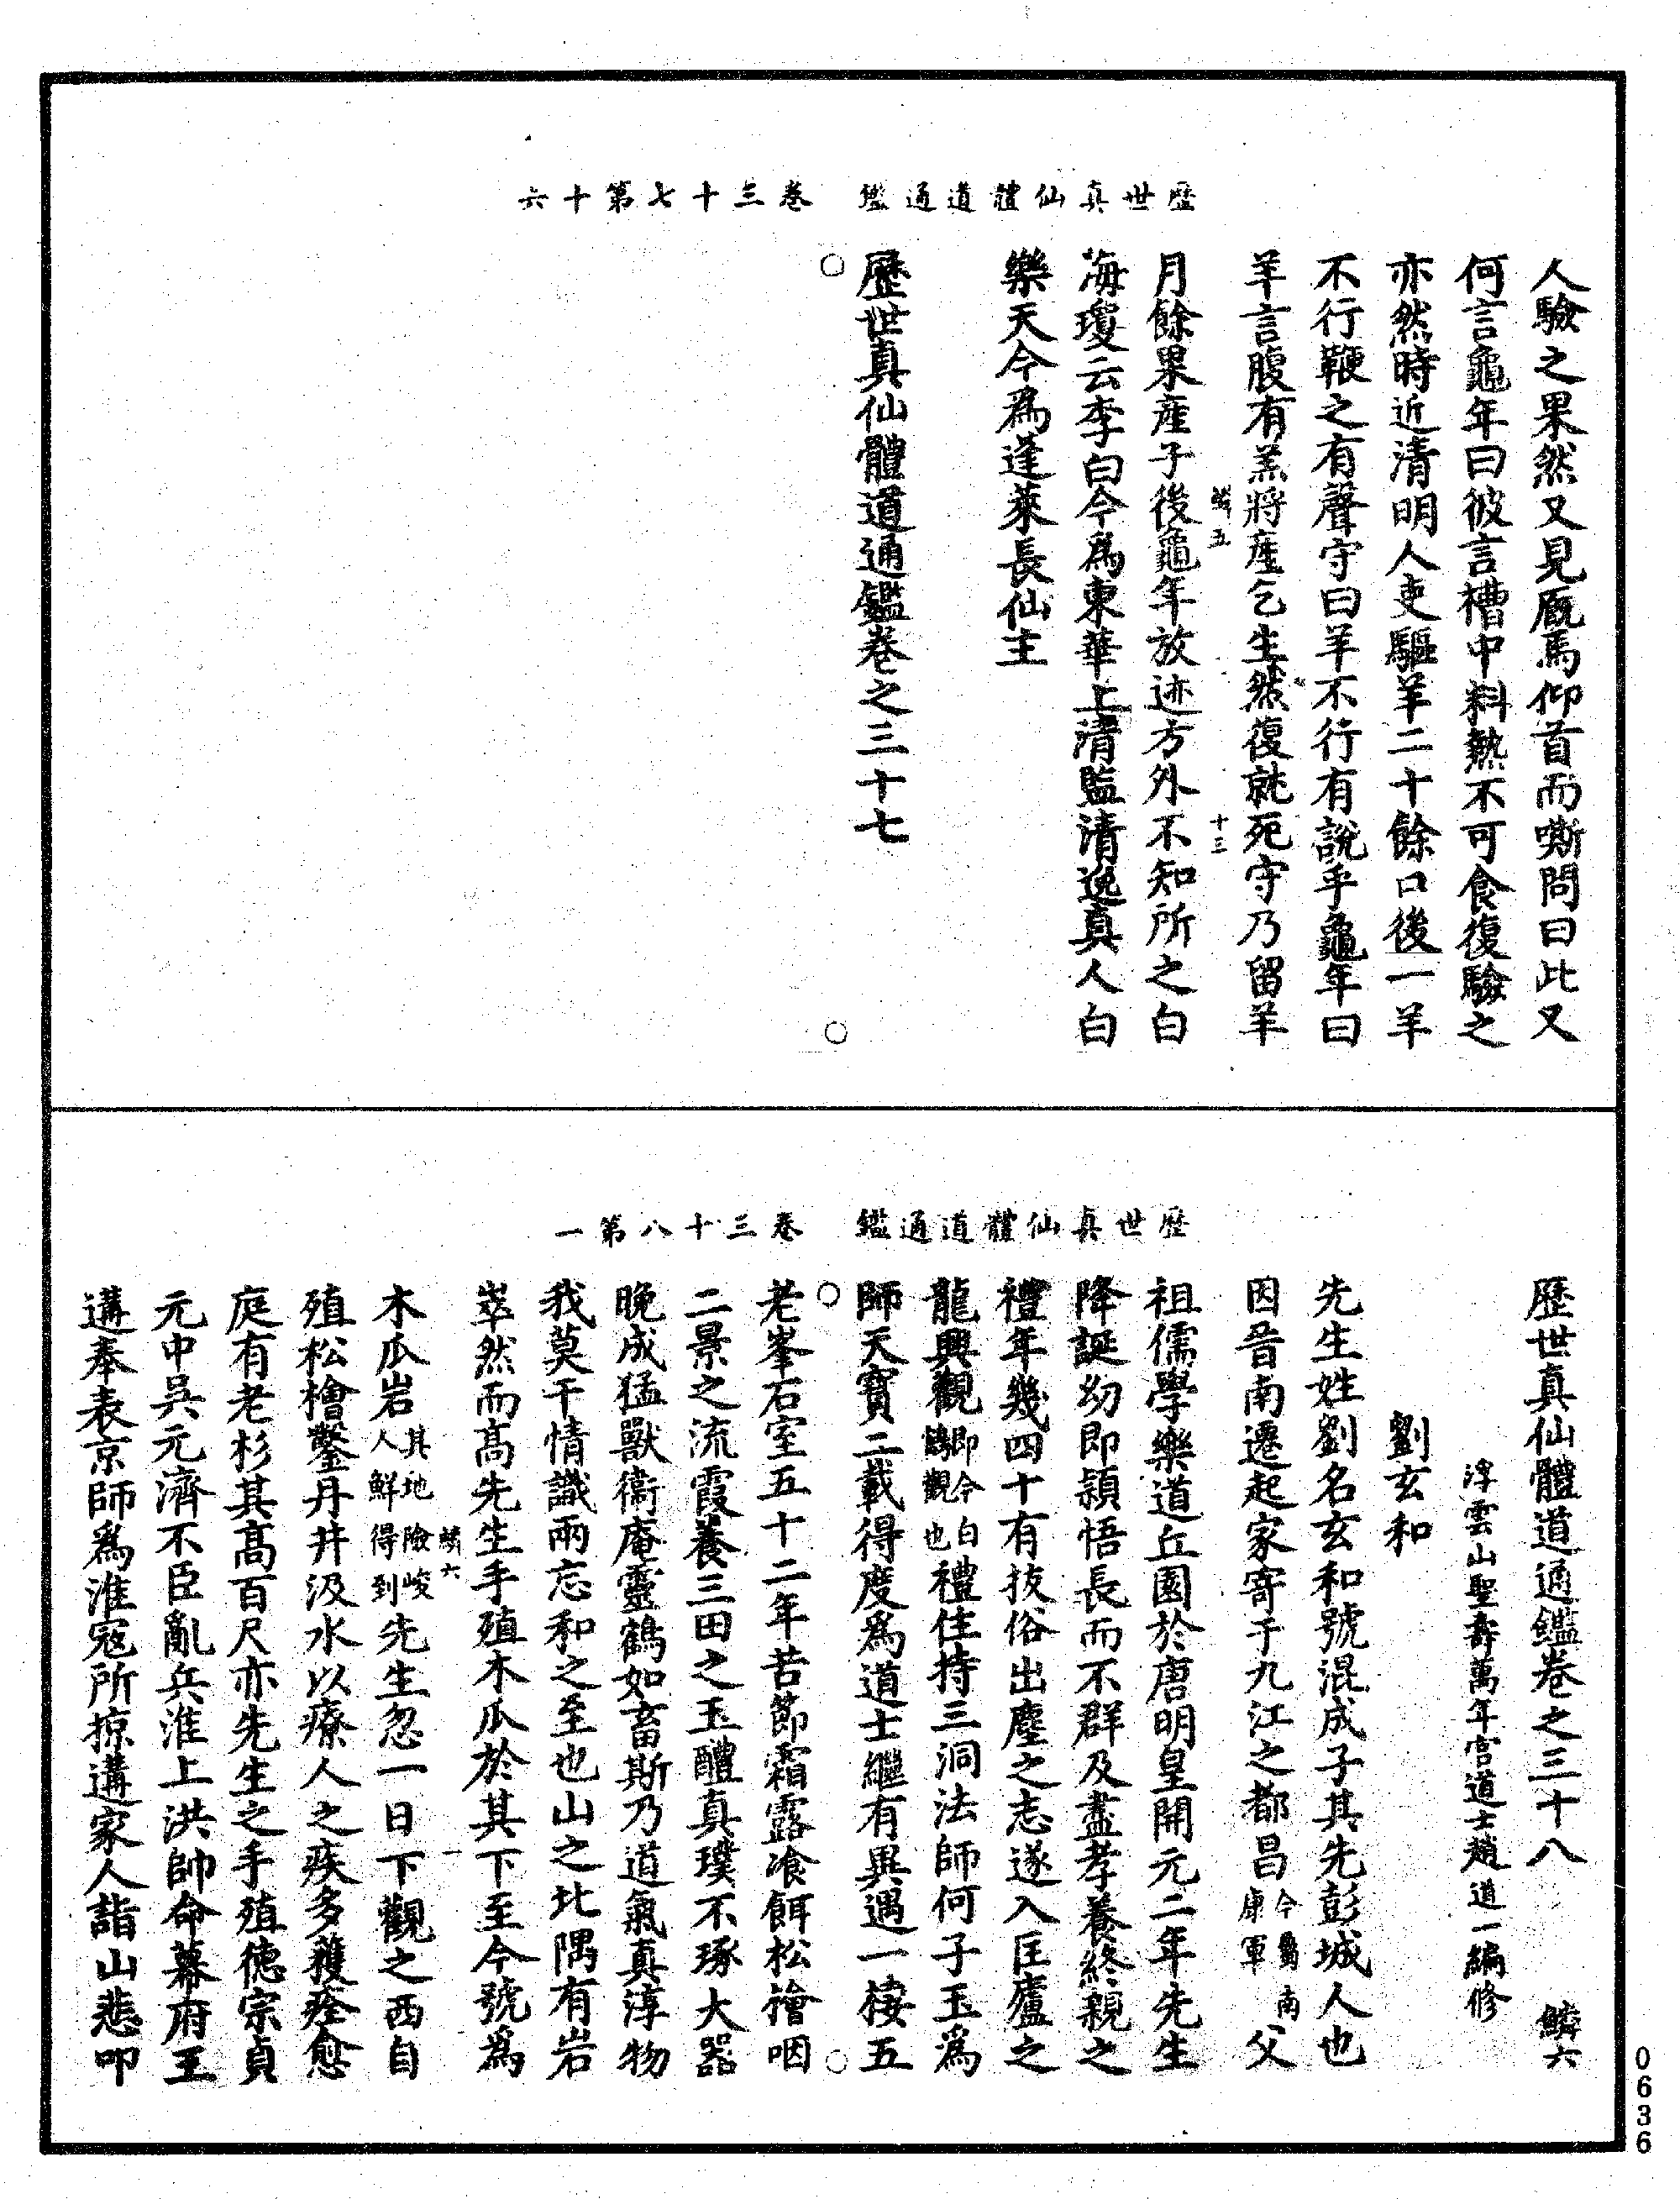 歷世真仙體道通鑑　卷三十七第十六
人驗之果然又見厩馬仰首而嘶問曰此又
何言龜年曰彼言槽中料熱不可食復驗之
亦然時近清明人吏驅羊二十餘口後一羊
不行鞭之有聲守曰羊不行有說乎龜年曰
羊言腹有羔將產乞生然復就死守乃留羊
鱗五　十三
月餘果產子後龜年放迹方外不知所之白
海瓊云李白今為東華上清監清逸真人白
樂天今為逢萊長仙主
歷世真仙體道通鑑卷之三十七
歷世真仙體道通鑑　卷三十八第一
歷世真仙體道通鑑卷之三十八　鱗六
浮雲山聖壽萬年宮道士趙道一編修
劉玄和
先生姓劉名玄和號混成子其先彭城人也
因晉南遷起家寄于九江之都昌今屬南康軍父
祖儒學樂道丘園於唐明皇開元二年先生
降誕幼即頴悟長而不群及盡孝養終親之
禮年幾四十有拔俗出塵之志遂入匡廬之
龍興觀即今白鶴觀也禮住持三洞法師何子玉為
師天寶二載得度為道士繼有異遇一棲五
老峯石室五十二年苦節霜露飡餌松檜咽
二景之流霞養三田之玉醴真璞不琢大器
晚成猛獸衛庵靈鶴如畜斯乃道氣真淳物
我莫干情識兩忘和之至也山之北隅有岩
崒然而高先生手殖木瓜於其下至今號為
鱗六　一
木瓜岩其地險峻人鮮得到先生忽一日下觀之西自
殖松檜鑿丹井汲水以療人之疾多獲痊愈
庭有老杉其高百尺亦先生之手殖德宗貞
元中吳元濟不臣亂兵淮上洪帥命幕府王
遘奉表京師為淮寇所掠遘家人詣山悲叩
0636